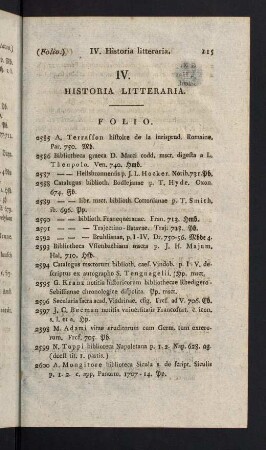 (Folio.) IV. Historia litteraria. 215
IV.
HISTORIA LITTERARIA.
FOLIO.
2585 A. Terrasson histoire de la jurisprud. Romaine,
Par. 750. Mb.
2586 Bibliotheca graeca D. Marci codd. msct. digesta a L.
Theupolo. Ven. 740. Hmb.
2587 —— Heilsbronnensis p. J. L. Hocker. Norib. 731. Pb.
2588 Catalogus biblioth. Bodlejanae p. T. Hyde. Oxon.
674. Fb.
2589 —— libr. msct. biblioth. Cottonianae p. T. Smith,
ib. 696. Pp.
2590 —— biblioth. Franequeranae. Fran. 713. Hmb.
2591 —— Trajectino-Batavae. Traj. 718. Pb.
2592 —— Bruhlianae, p. I-IV. Dr. 750-56. Mbbe 4.
2593 Bibliotheca Uffenbachiana mscta p. J. H. Majum,
Hal. 720. Hfb.
2594 Catalogus mstorum biblioth. caes. Vindob. p. I-V, de-
scriptus ex autographo S. Tengnagelii, Pp. msct.
2595 G. Kranz notitia historicorum bibliothecae Rhedigero-
chronologice disposita. Pp. msct.
2596 Secularia sacra acad. Viadrinae, eiusq. Fref. ad V. 706. Pb.
2597 J. C. Becman notitia universitatis Francofurt. c. icon.
s. l. et a. Pp.
2598 M. Adami vitae eruditorum cum Germ. tum extero-
rum. Fref. 705. Pb.
2599 N. Toppi biblioteca Napoletana p. 1. 2. Nap. 678. ag.
(deest tit. 1. partis.)
2600 A. Mongitore bibliotheca Sicula s. de script. Siculis
p. 1. 2. c. app. Panorm. 1707-14. Pp.